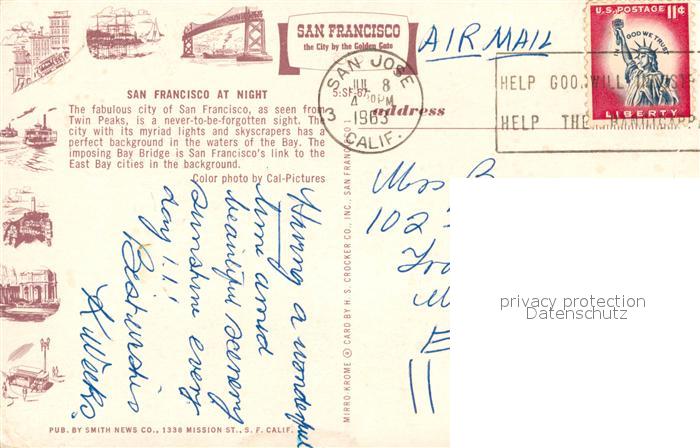 SAN FRANCISCO
the City by the Golden Gate
AIR MAIL
U.S. POSTAGE 11¢
IN GOD WE TRUST
LIBERTY
SAN JOSE
JUL 8
4 PM
1963
3
CALIF.
HELP GOODWILL
HELP THE HANDICAPP
SAN FRANCISCO AT NIGHT
5:SF-67
The fabulous city of San Francisco, as seen from
Twin Peaks, is a never-to-be-forgotten sight. The
city with its myriad lights and skyscrapers has a
perfect background in the waters of the Bay. The
imposing Bay Bridge is San Francisco's link to the
East Bay cities in the background.
Color photo by Cal-Pictures
address
Having a wonderful
time amid
beautiful scenery
sunshine every
day !.!!
Best wishes
K Weeks.
MIRRO-KROME ® CARD BY H. S. CROCKER CO., INC., SAN FRANCISCO
Miss
102
PUB. BY SMITH NEWS CO., 1338 MISSION ST., S. F. CALIF.
privacy protection
Datenschutz